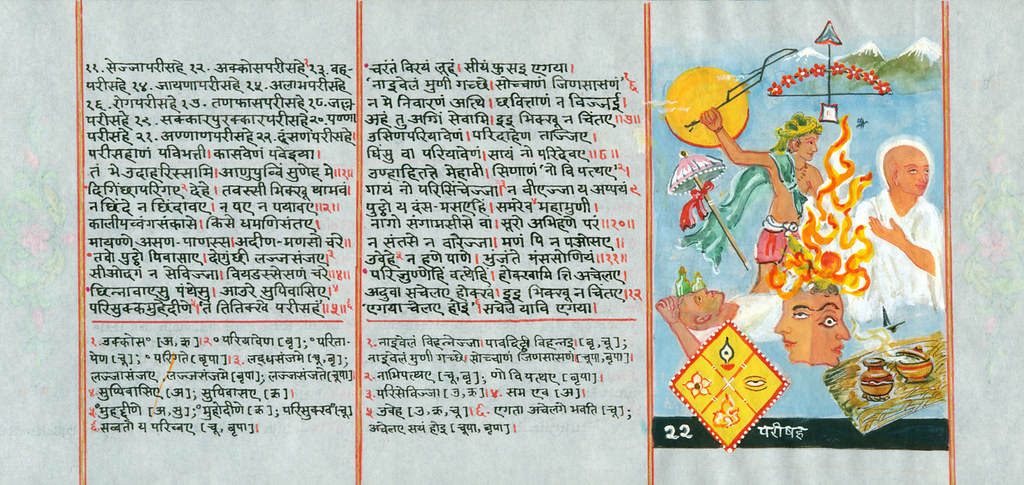 ११. सेज्जापरीसहे १२. अक्कोसपरीसहे १३. वह-
परीसहे १४. जायणापरीसहे १५. अलाभपरीसहे
१६. रोगपरीसहे १७. तणफासपरीसहे १८. जल्ल
परीसहे १९. सक्कारपुरक्कारपरीसहे २०. पण्णा
परीसहे २१. अण्णाणपरीसहे २२. दंसणपरीसहे।
परीसहाणं पविभत्ती। कासवेणं पवेइया।
तं भे उदाहरिस्सामि। आणुपुव्विं सुणेह मे॥१॥
दिगिंछापरिगए देहे। तवस्सी भिक्खू थामवं।
न छिंदे न छिंदावए। न पए न पयावए॥२॥
कालीपव्वंगसंकासे। किसे धमणिसंतए।
मायण्णे असण-पाणस्स। अदीण-मणसो चरे॥
तओ पुट्ठो पिवासाए। दोगुंछी लज्जसंजए।
सीओदगं न सेविज्जा। वियडस्सेसणं चरे॥४॥
छिन्नावाएसु पंथेसु। आउरे सुपिवासिए।
परिसुक्कमुहद्दीणे। तं तितिक्खे परीसहं॥५॥
१. उक्कोस° [अ, क्र]। २ °परियावेण [बृ]; °परिता-
वेण [चू]; °परिगते [बृपा]। ३. लद्धसंजमे [चू, बृ];
लज्जासंजए, लज्जासंजमे [बृपा]; लज्जासंजते [चूपा]
४. सुप्पिवासिए [अ]; सुपिवासए [क्र]।
५. °मुहद्दीणे [अ, सु]; °मुहोदीणे [क्र]; परिसुक्खमु° [चू]
६. सव्वतो य परिव्वए [चू, बृपा]।
चरंतं विरयं लूहं। सीयं फुसइ एगया।
नाइवेलं मुणी गच्छे। सोच्चाणं जिणसासणं॥६
न मे निवारणं अत्थि। छवित्ताणं न विज्जई।
अहं तु अग्गिं सेवामि। इइ भिक्खू न चिंतए॥७॥
उसिणंपरियावेणं। परिदाहेण तज्जिए।
घिंसु वा परियावेणं। सायं नो परिदेवए॥८॥
उण्हाहितत्ते मेहावी। सिणाणं नो वि पत्थए।
गायं नो परिसिंचेज्जा। न वीएज्जा य अप्पयं ९
पुट्ठो य दंस-मसएहिं। समरेव महामुणी।
नागो संगामसीसे वा। सूरो अभिहणे परं॥१०॥
न संतसे न वारेज्जा। मणं पि न पओसए।
उवेहे न हणे पाणे। भुंजंते मंससोणियं॥११॥
परिजुण्णेहिं वत्थेहिं। होक्खामि त्ति अचेलए।
अदुवा सचेलए होक्खं। इइ भिक्खू न चिंतए॥१२
एगया चेलए होइ। सचेले यावि एगया।
१. नाइवेलं विहन्नेज्जा। पावदिट्ठी विहन्नइ [बृ, चू];
नाइवेलं मुणी गच्छे। सोच्चाणं जिणसासणं [चूपा, बृपा]।
२. नाभिपत्थए [चू, बृ]; णो वि पत्थए [बृपा]।
३. परिसेविज्जा [उ, क्र]। ४. सम एव [अ]।
५ उवेह [उ, क्र, चू]। ६. एगता अचेलगे भवति [चू];
अचेलए सयं होइ [चूपा, बृपा]।
२२ परीषह